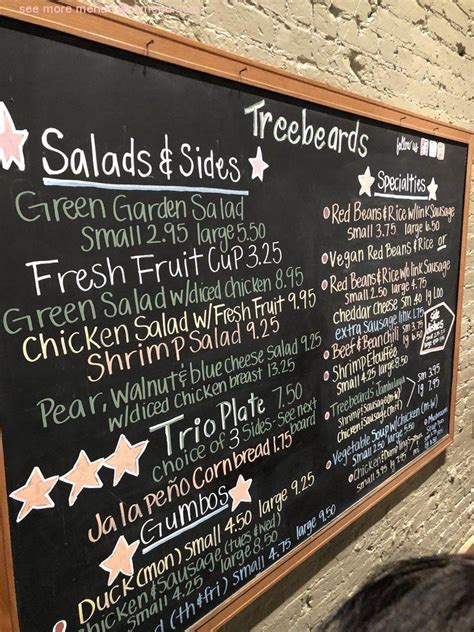 see more menus
Treebeards
follow us
Salads & Sides
Green Garden Salad
small 2.95 large 5.50
Fresh Fruit Cup 3.25
Green Salad w/diced chicken 8.95
Chicken Salad w/Fresh Fruit 9.95
Shrimp Salad 9.25
Pear, walnut & blue Cheese Salad 9.25
w/diced Chicken breast 13.25
Trio Plate 7.50
choice of 3 Sides - See next
board
Jalapeño Cornbread 1.75
Gumbos
Duck (mon) small 4.50 large 9.25
chicken & Sausage (tues & wed)
small 4.25 large 8.50
(th & fri) small 4.75 large 9.50
Specialties
Red Beans & Rice w/link Sausage
small 3.75 large 6.50
Vegan Red Beans & Rice or
Red Beans & Rice w/o link Sausage
small 2.50 large 4.75
cheddar cheese sm .40 lg 1.00
extra Sausage link 1.75
Beef & Bean Chili
Shrimp Etouffee
small 4.25 large 8.50
Treebeards Jambalaya
Shrimp & Sausage
chicken & Sausage
sm 3.95
lg 7.95
Vegetable Soup w/Chicken (m-w)
small 2.50 large 5.50
Chicken &
small 3.75
Side
dishes